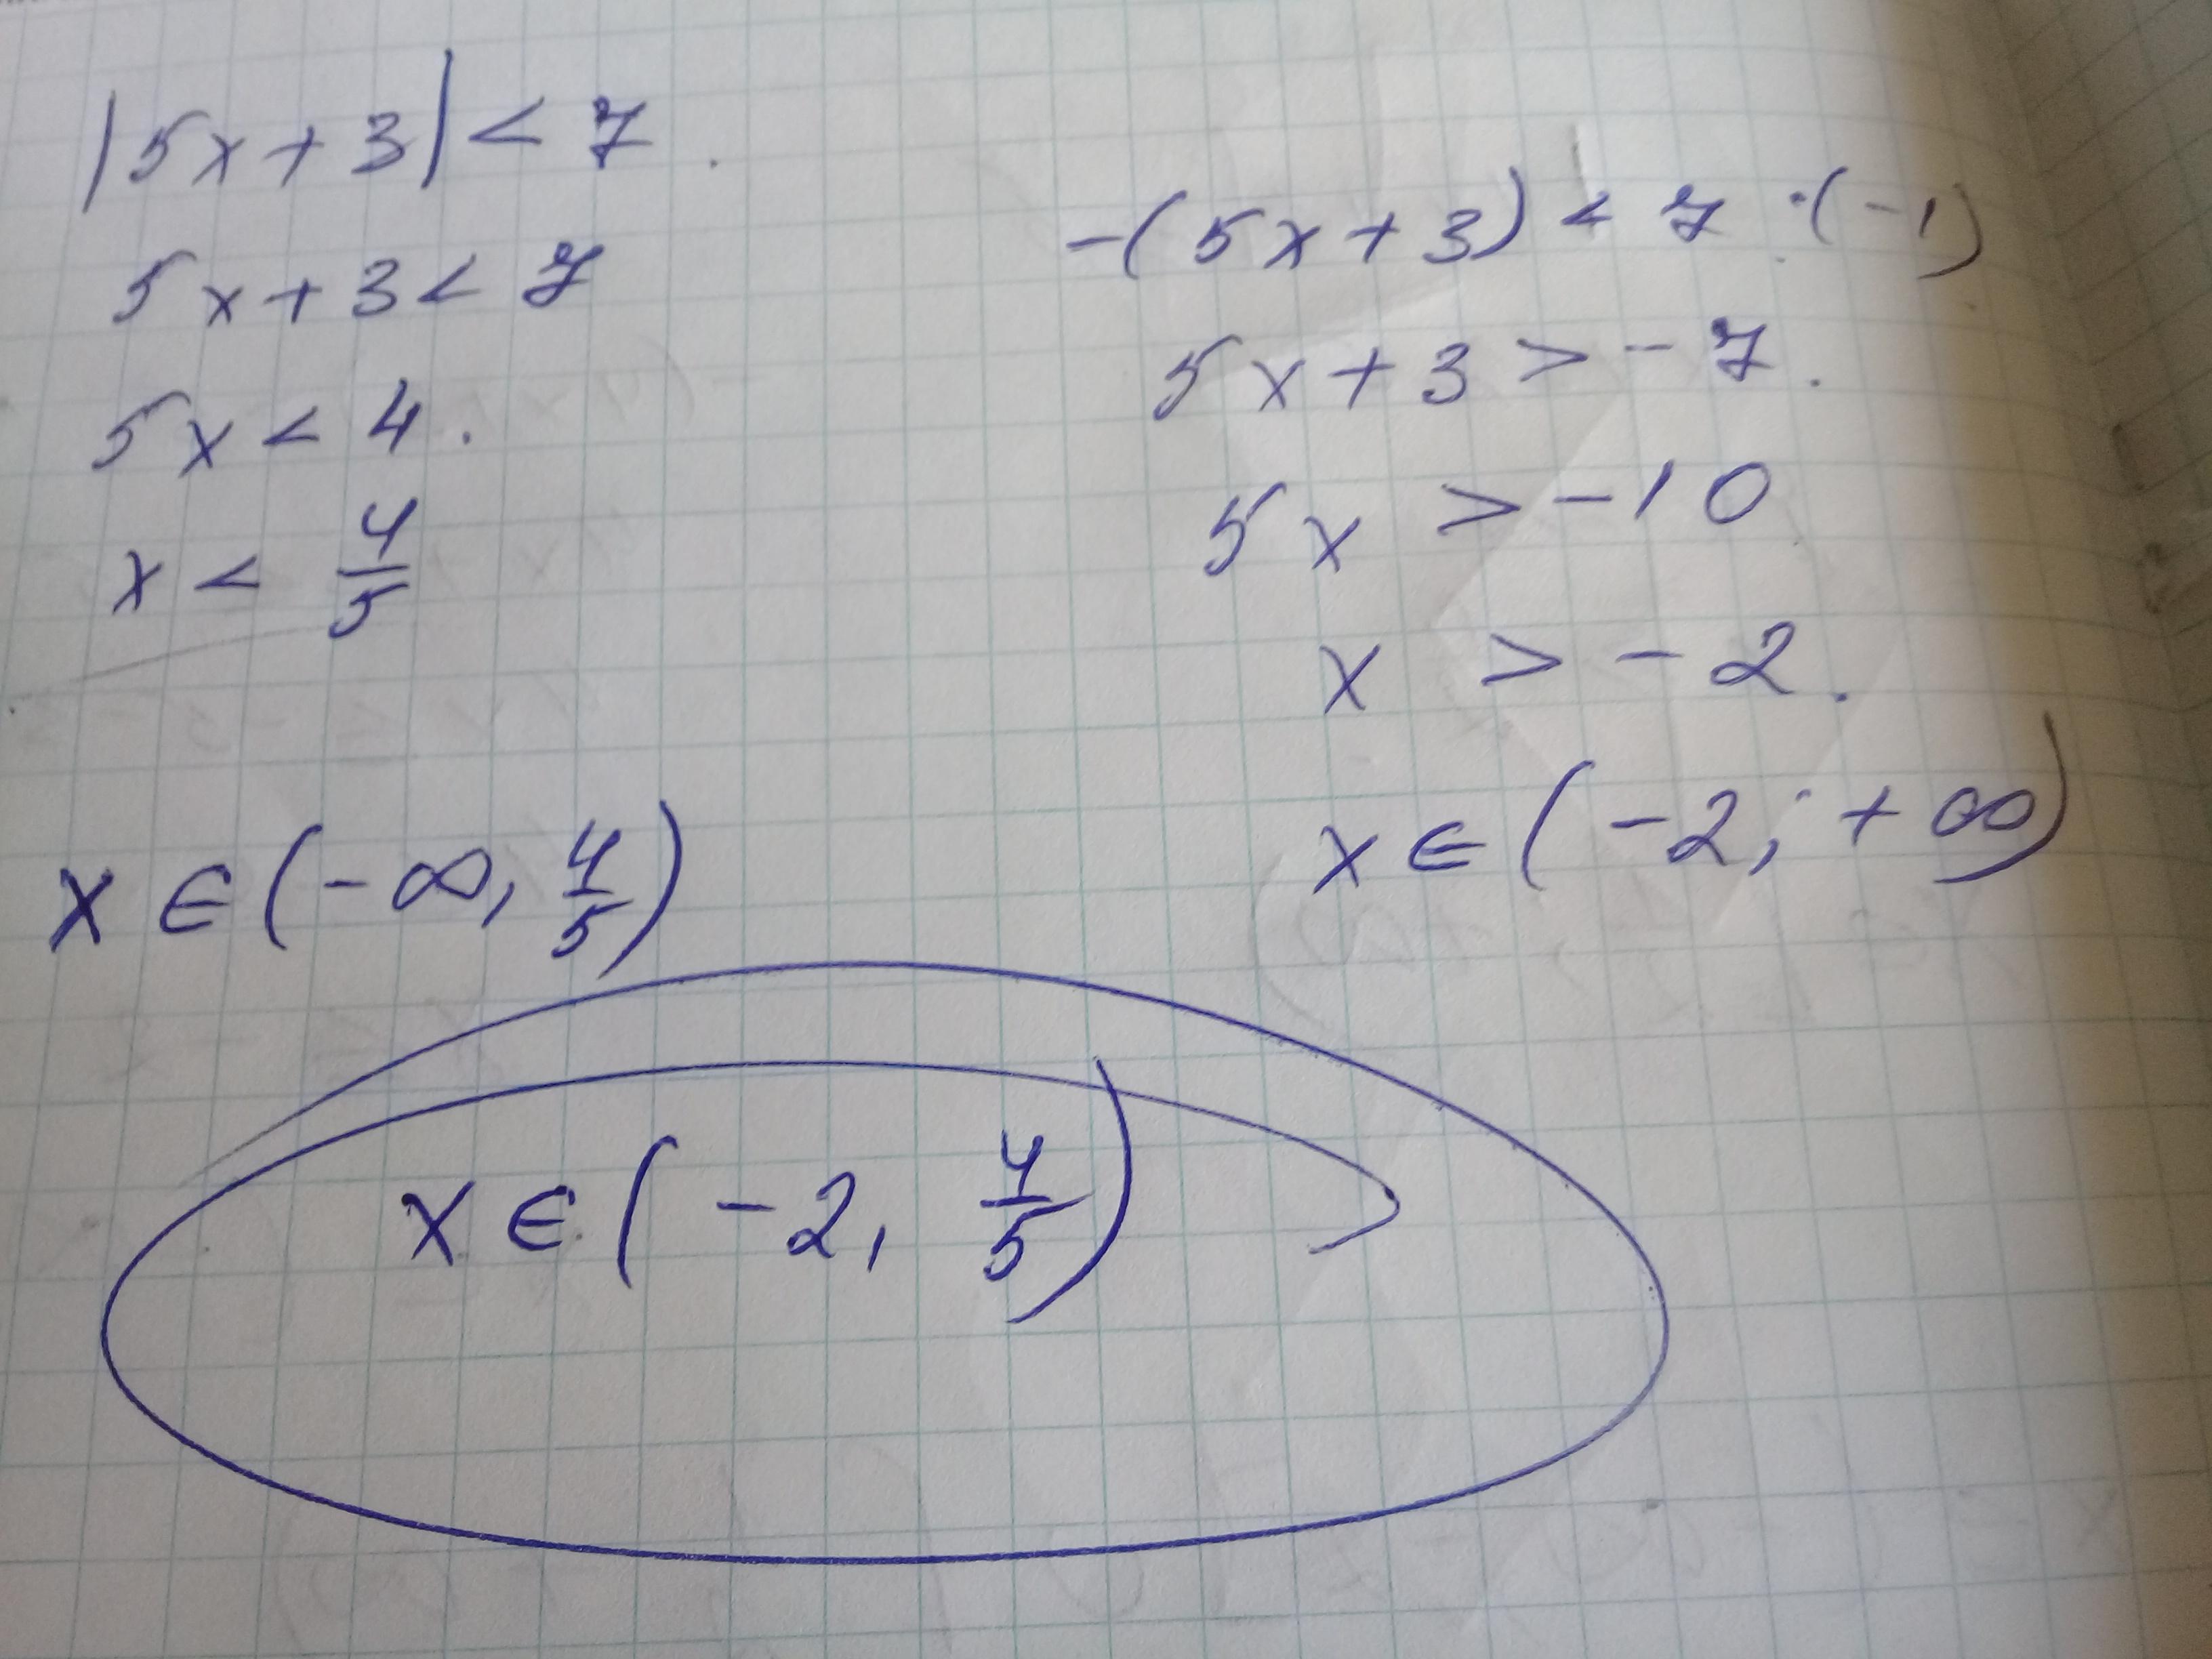 |5x+3|<7.
5x+3<7
5x<4.
x<4/5
x∈(-∞,4/5)
-(5x+3)<7 ·(-1)
5x+3>-7.
5x>-10
x>-2.
x∈(-2;+∞)
x∈(-2,4/5)